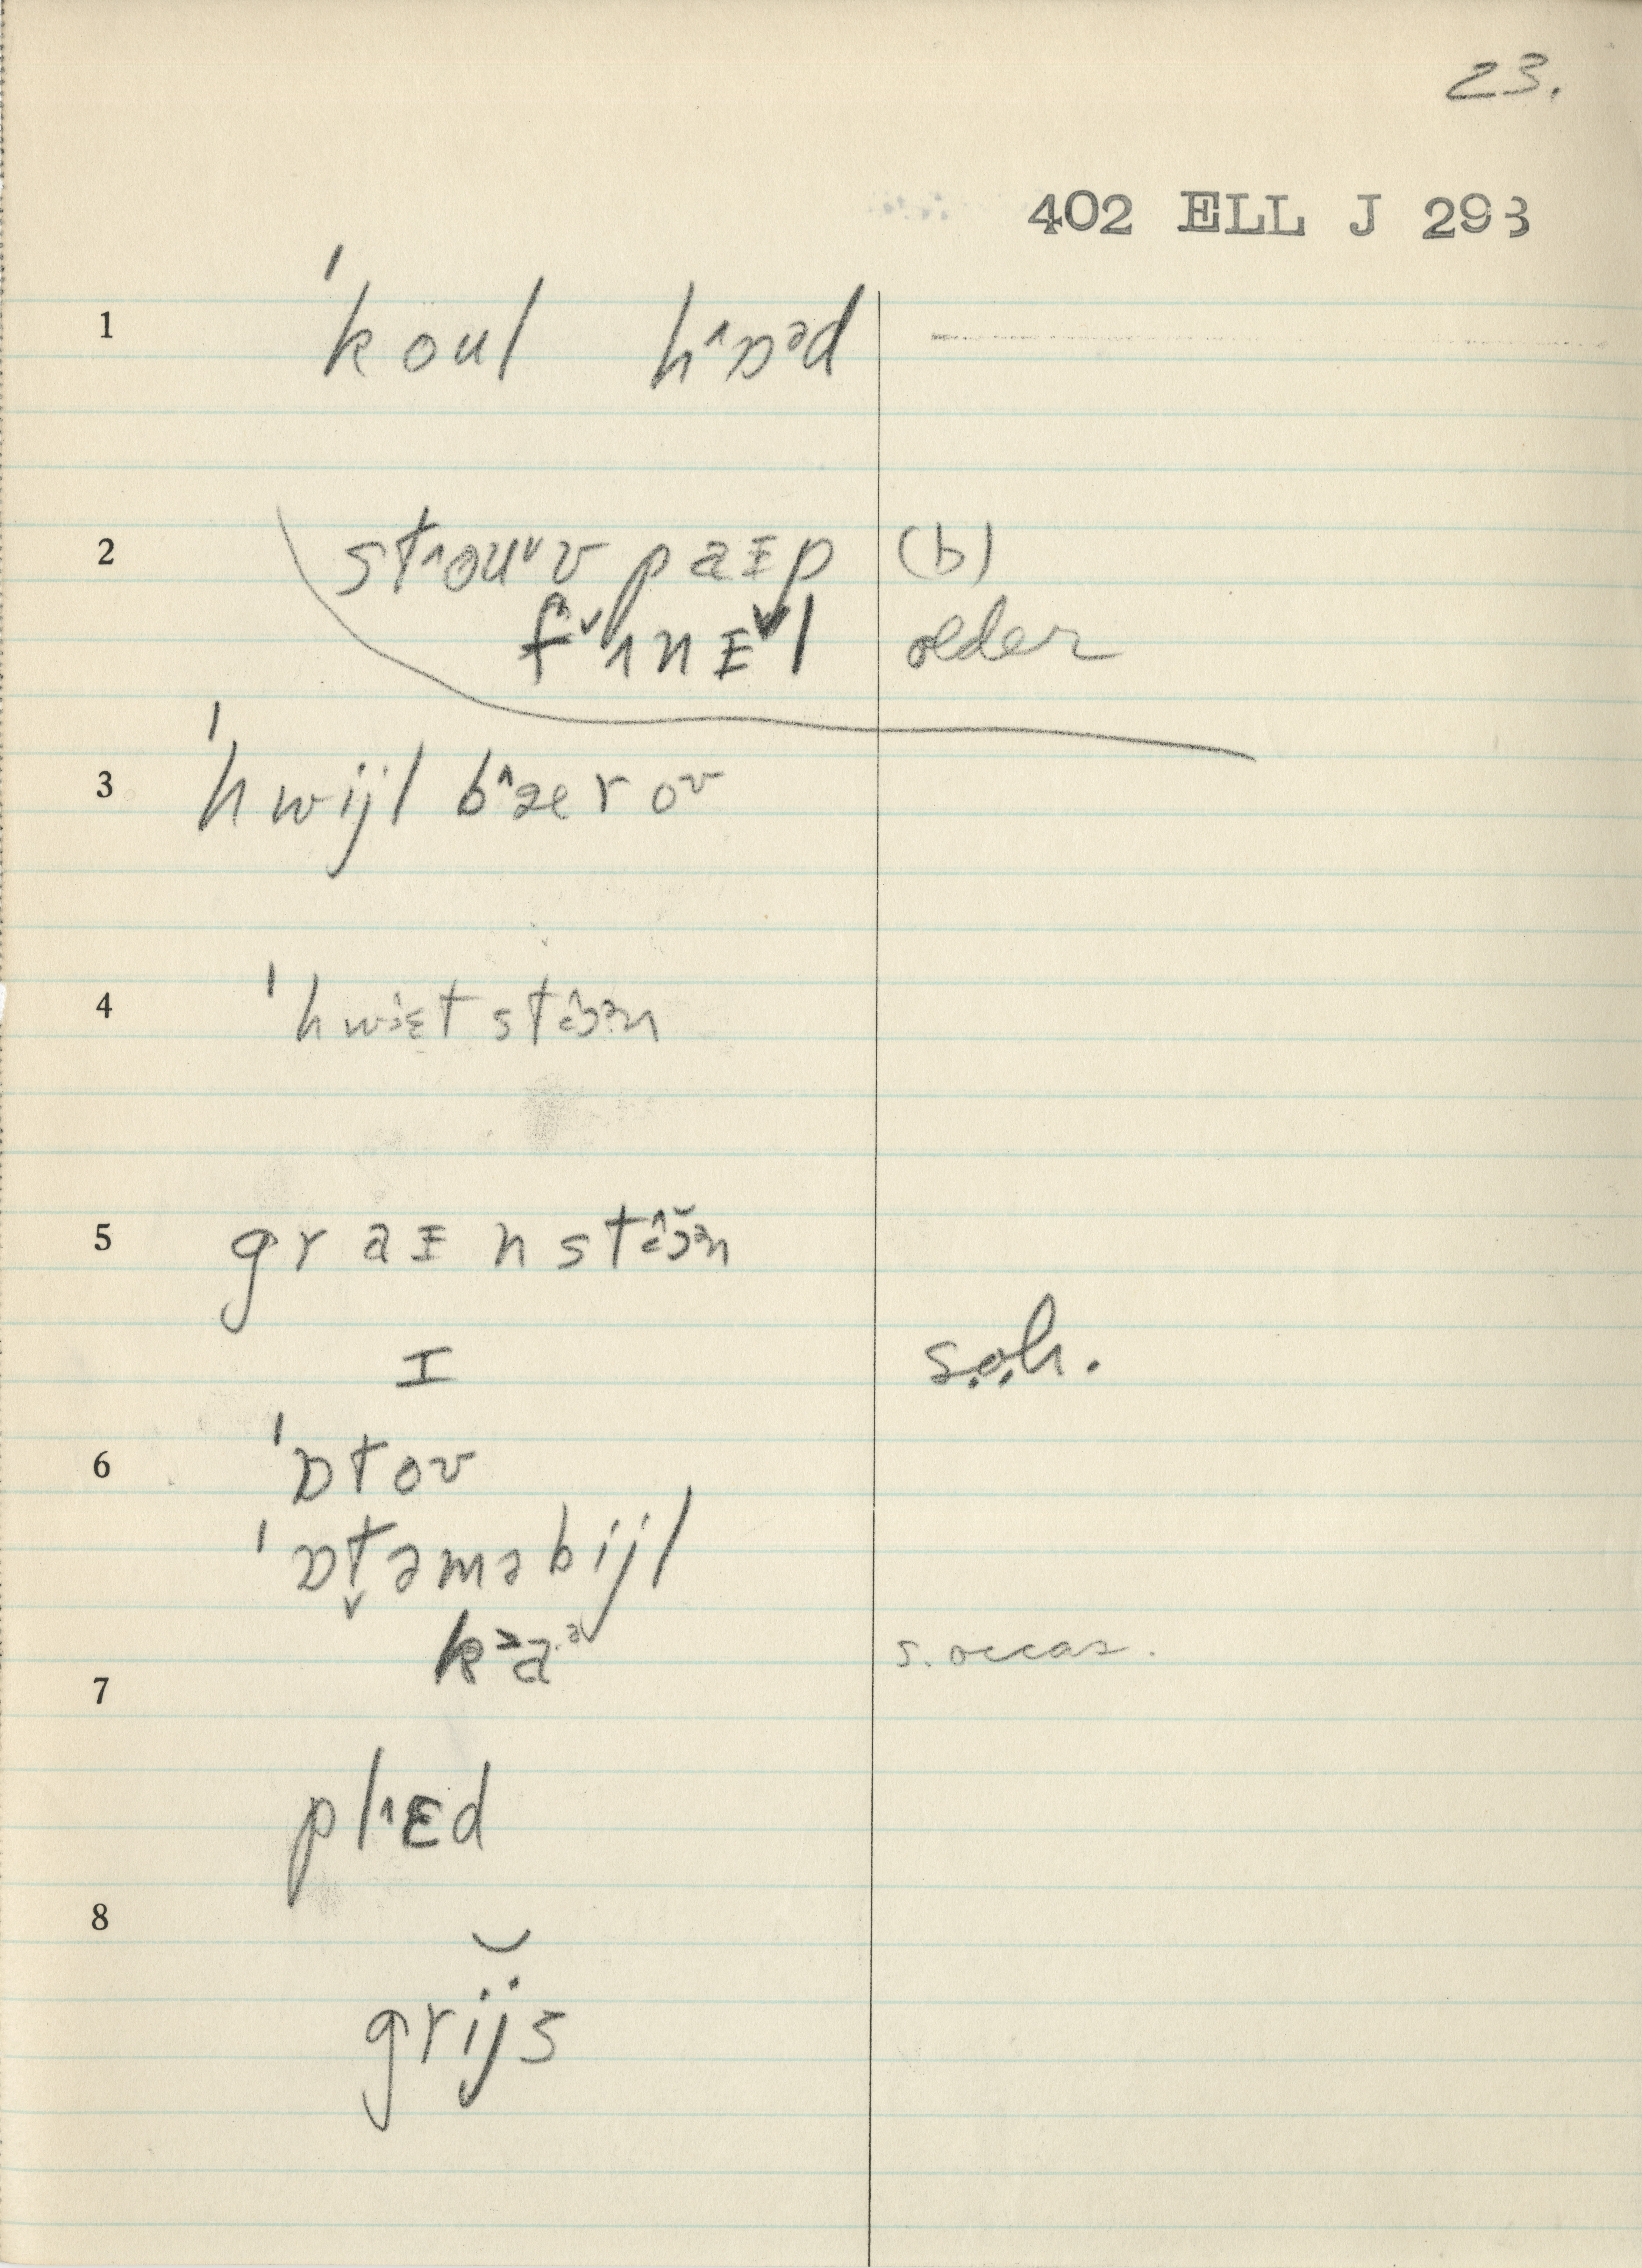 23.
402 ELL J 293
1 ˈkoul h^ɒᵊd
2 st^ouᵘv paɪp (b)
fˇʌnɪˇl older
3 ˈhwijl b^æɛroʊ
4 ˈhwɪɛt stɔᵊn
5 graɪnstɔ̆ᵊn
I s.o.h.
6 ˈɒtoʊ
ˈɒt̬əməbijl
k˃aᵊ s. occas.
7
pl^ɛd
8
grij̆s